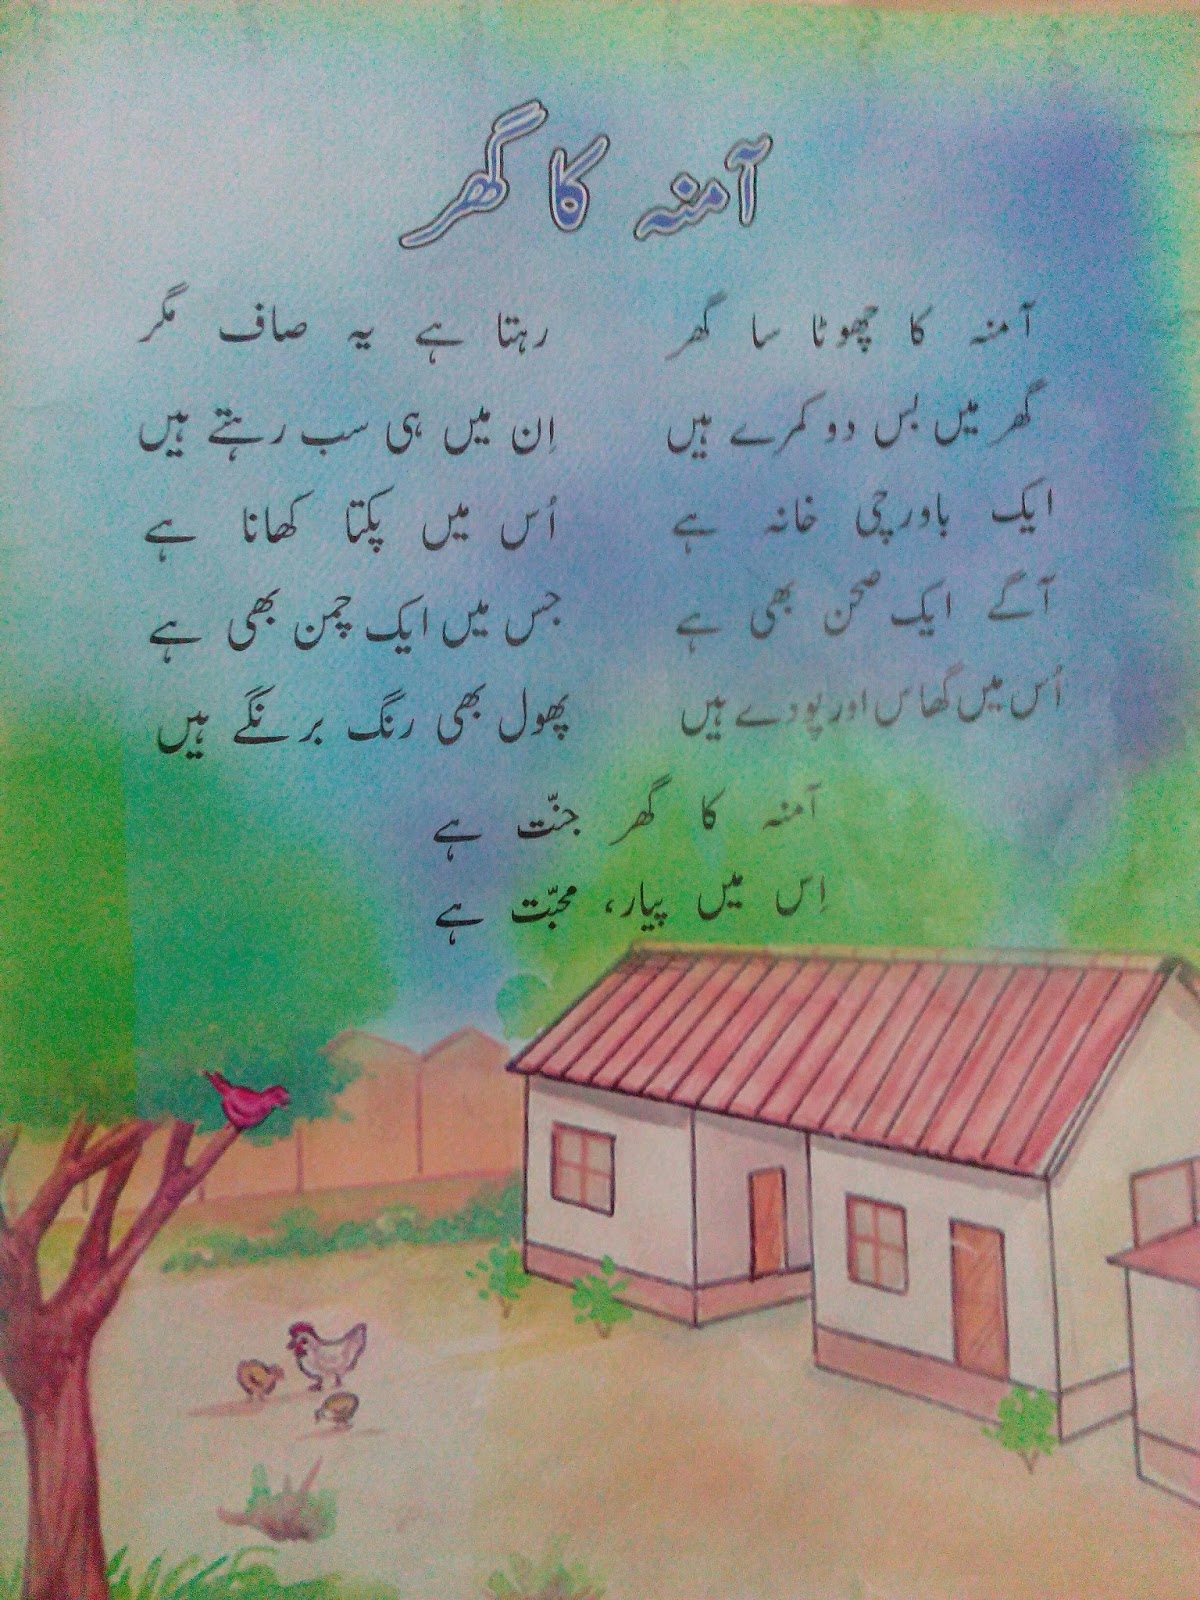 آمنہ کا گھر
آمنہ کا چھوٹا سا گھر رہتا ہے یہ صاف مگر
گھر میں بس دو کمرے ہیں اِن میں ہی سب رہتے ہیں
ایک باورچی خانہ ہے اُس میں پکتا کھانا ہے
آگے ایک صحن بھی ہے جس میں ایک چمن بھی ہے
اُس میں گھاس اور پودے ہیں پھول بھی رنگ برنگے ہیں
آمنہ کا گھر جنّت ہے
اِس میں پیار، محبّت ہے